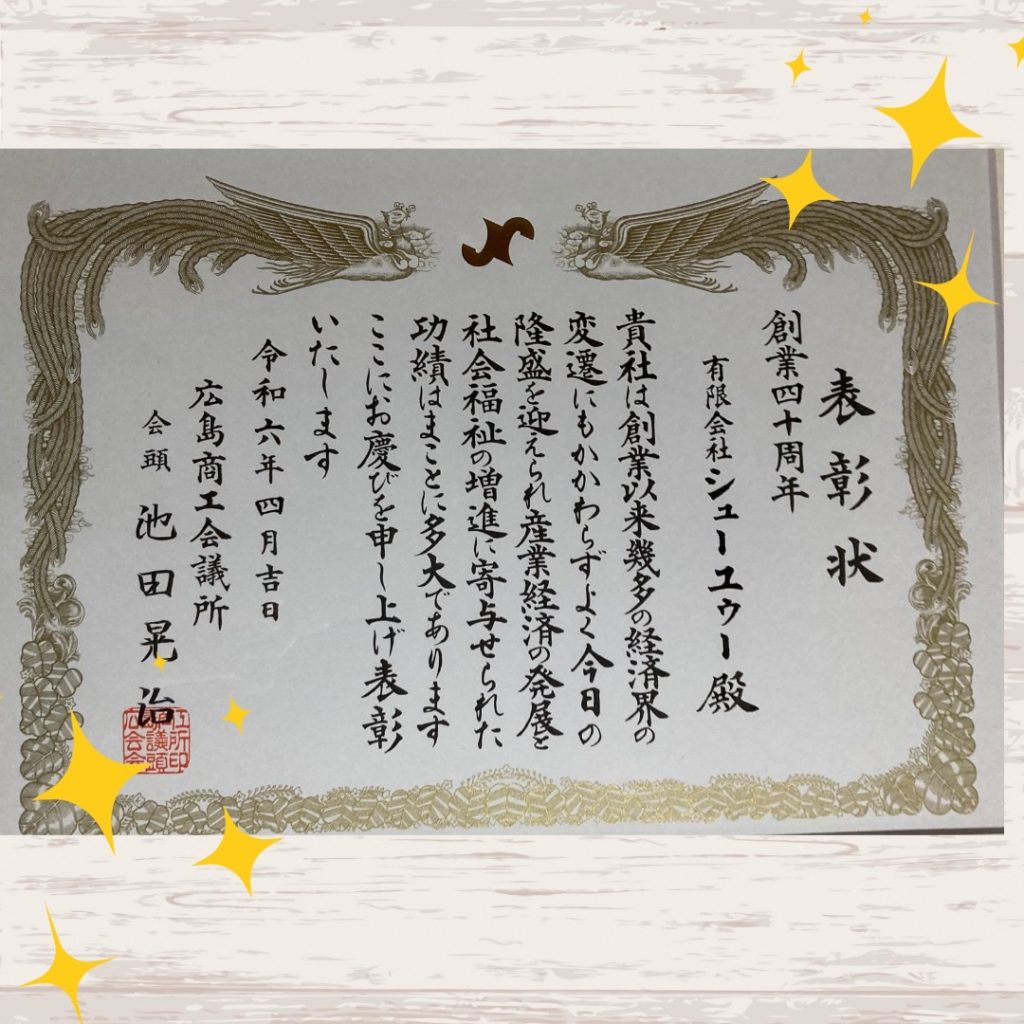 表彰状
創業四十周年
有限会社シューユゥー殿
貴社は創業以来幾多の経済界の
変遷にもかかわらずよく今日の
隆盛を迎えられ産業経済の発展と
社会福祉の増進に寄与せられた
功績はまことに多大であります
ここにお慶びを申し上げ表彰
いたします
令和六年四月吉日
広島商工会議所
会頭 池田晃治